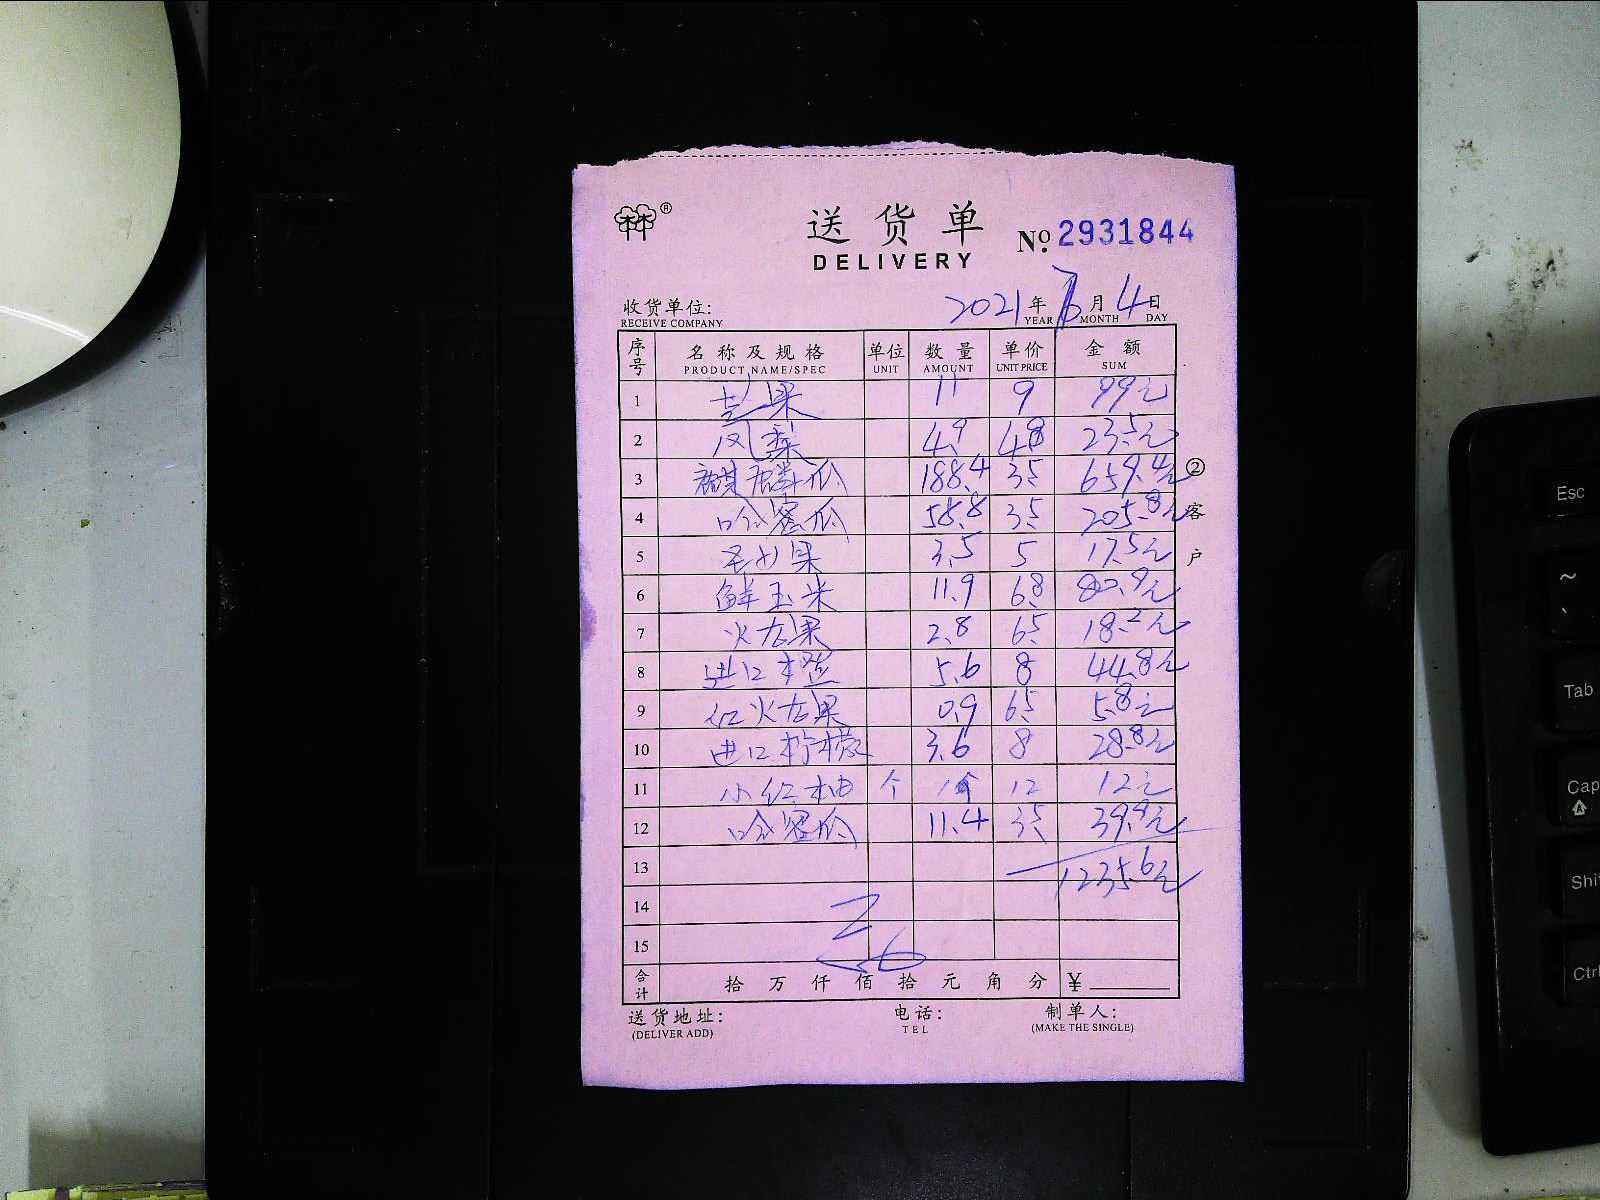 林®
送货单
DELIVERY
No. 2931844
收货单位:
RECEIVE COMPANY
2021年 月4日
YEAR MONTH DAY
序号 名称及规格 单位 数量 单价 金额
PRODUCT NAME/SPEC UNIT AMOUNT UNIT PRICE SUM
1 芒果 11 9 99元
2 凤梨 4.9 4.8 23.5元
3 麒麟瓜 188.4 3.5 659.4元
4 哈密瓜 58.8 3.5 205.8元
5 果 3.5 5 17.5元
6 鲜玉米 11.9 6.8 80.9元
7 火龙果 2.8 6.5 18.2元
8 进口橙 5.6 8 44.8元
9 红火龙果 0.9 6.5 5.8元
10 进口柠檬 3.6 8 28.8元
11 小红柚 个 1个 12 12元
12 哈密瓜 11.4 3.5 39.9元
13 1235.6元
14
15
合计 拾 万 仟 佰 拾 元 角 分 ¥
②客户
送货地址: 电话: 制单人:
(DELIVER ADD) TEL (MAKE THE SINGLE)
Esc
~
`
Tab
Cap
Shi
Ctrl